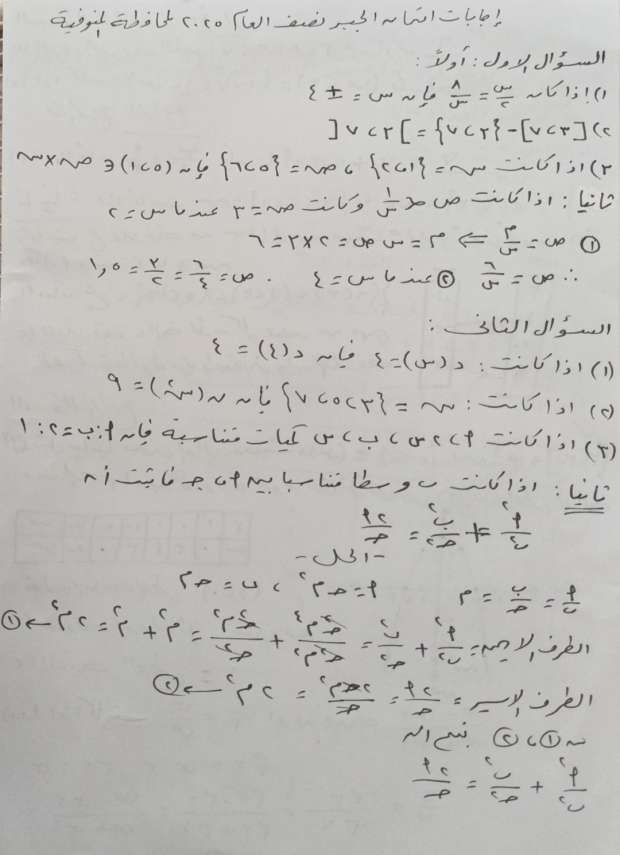 إجابات امتحان الجبر نصف العام ٢٠٢٥ لمحافظة المنوفية
السؤال الاول : أولاً :
١) اذا كان س/٢ = ٨/س فإن س = ± ٤
٢) [٣ ، ٧] - {٢ ، ٧} = ] ٧ ، ٢ [
٣) اذا كانت س = {١ ، ٢} ، ص = {٥ ، ٦} فإن (١ ، ٥) ∈ س × ص
ثانيا : اذا كانت ص ∝ ١/س وكانت ص = ٣ عندما س = ٢
① ص = م/س ⇐ م = س ص = ٢ × ٣ = ٦
∴ ص = ٦/س ② عندما س = ٤ . ص = ٦/٤ = ٣/٢ = ١,٥
السؤال الثانى :
(١) اذا كانت : د (س) = ٤ فإن د (٤) = ٤
(٢) اذا كانت : س = {٣ ، ٥ ، ٧} فإن ن (س²) = ٩
(٣) اذا كانت ٢ ، ٢ س ، ب ، س كميات متناسبة فإن ٢ : ب = ٢ : ١
ثانيا : اذا كانت ب وسطا متناسبا بين ٢ ، جـ فاثبت أن
٢²/ب² + ب²/حـ² = ٢٢/حـ
- الحل -
٢/ب = ب/حـ = م ٢ = حـ م² ، ب = حـ م
الطرف الايمن = ٢²/ب² + ب²/حـ² = حـ²م⁴/حـ²م² + حـ²م²/حـ² = م² + م² = ٢م² ← ①
الطرف الايسر = ٢٢/حـ = ٢حـم²/حـ = ٢ م² ← ②
من ① ، ② ينتج ان
٢²/ب² + ب²/حـ² = ٢٢/حـ